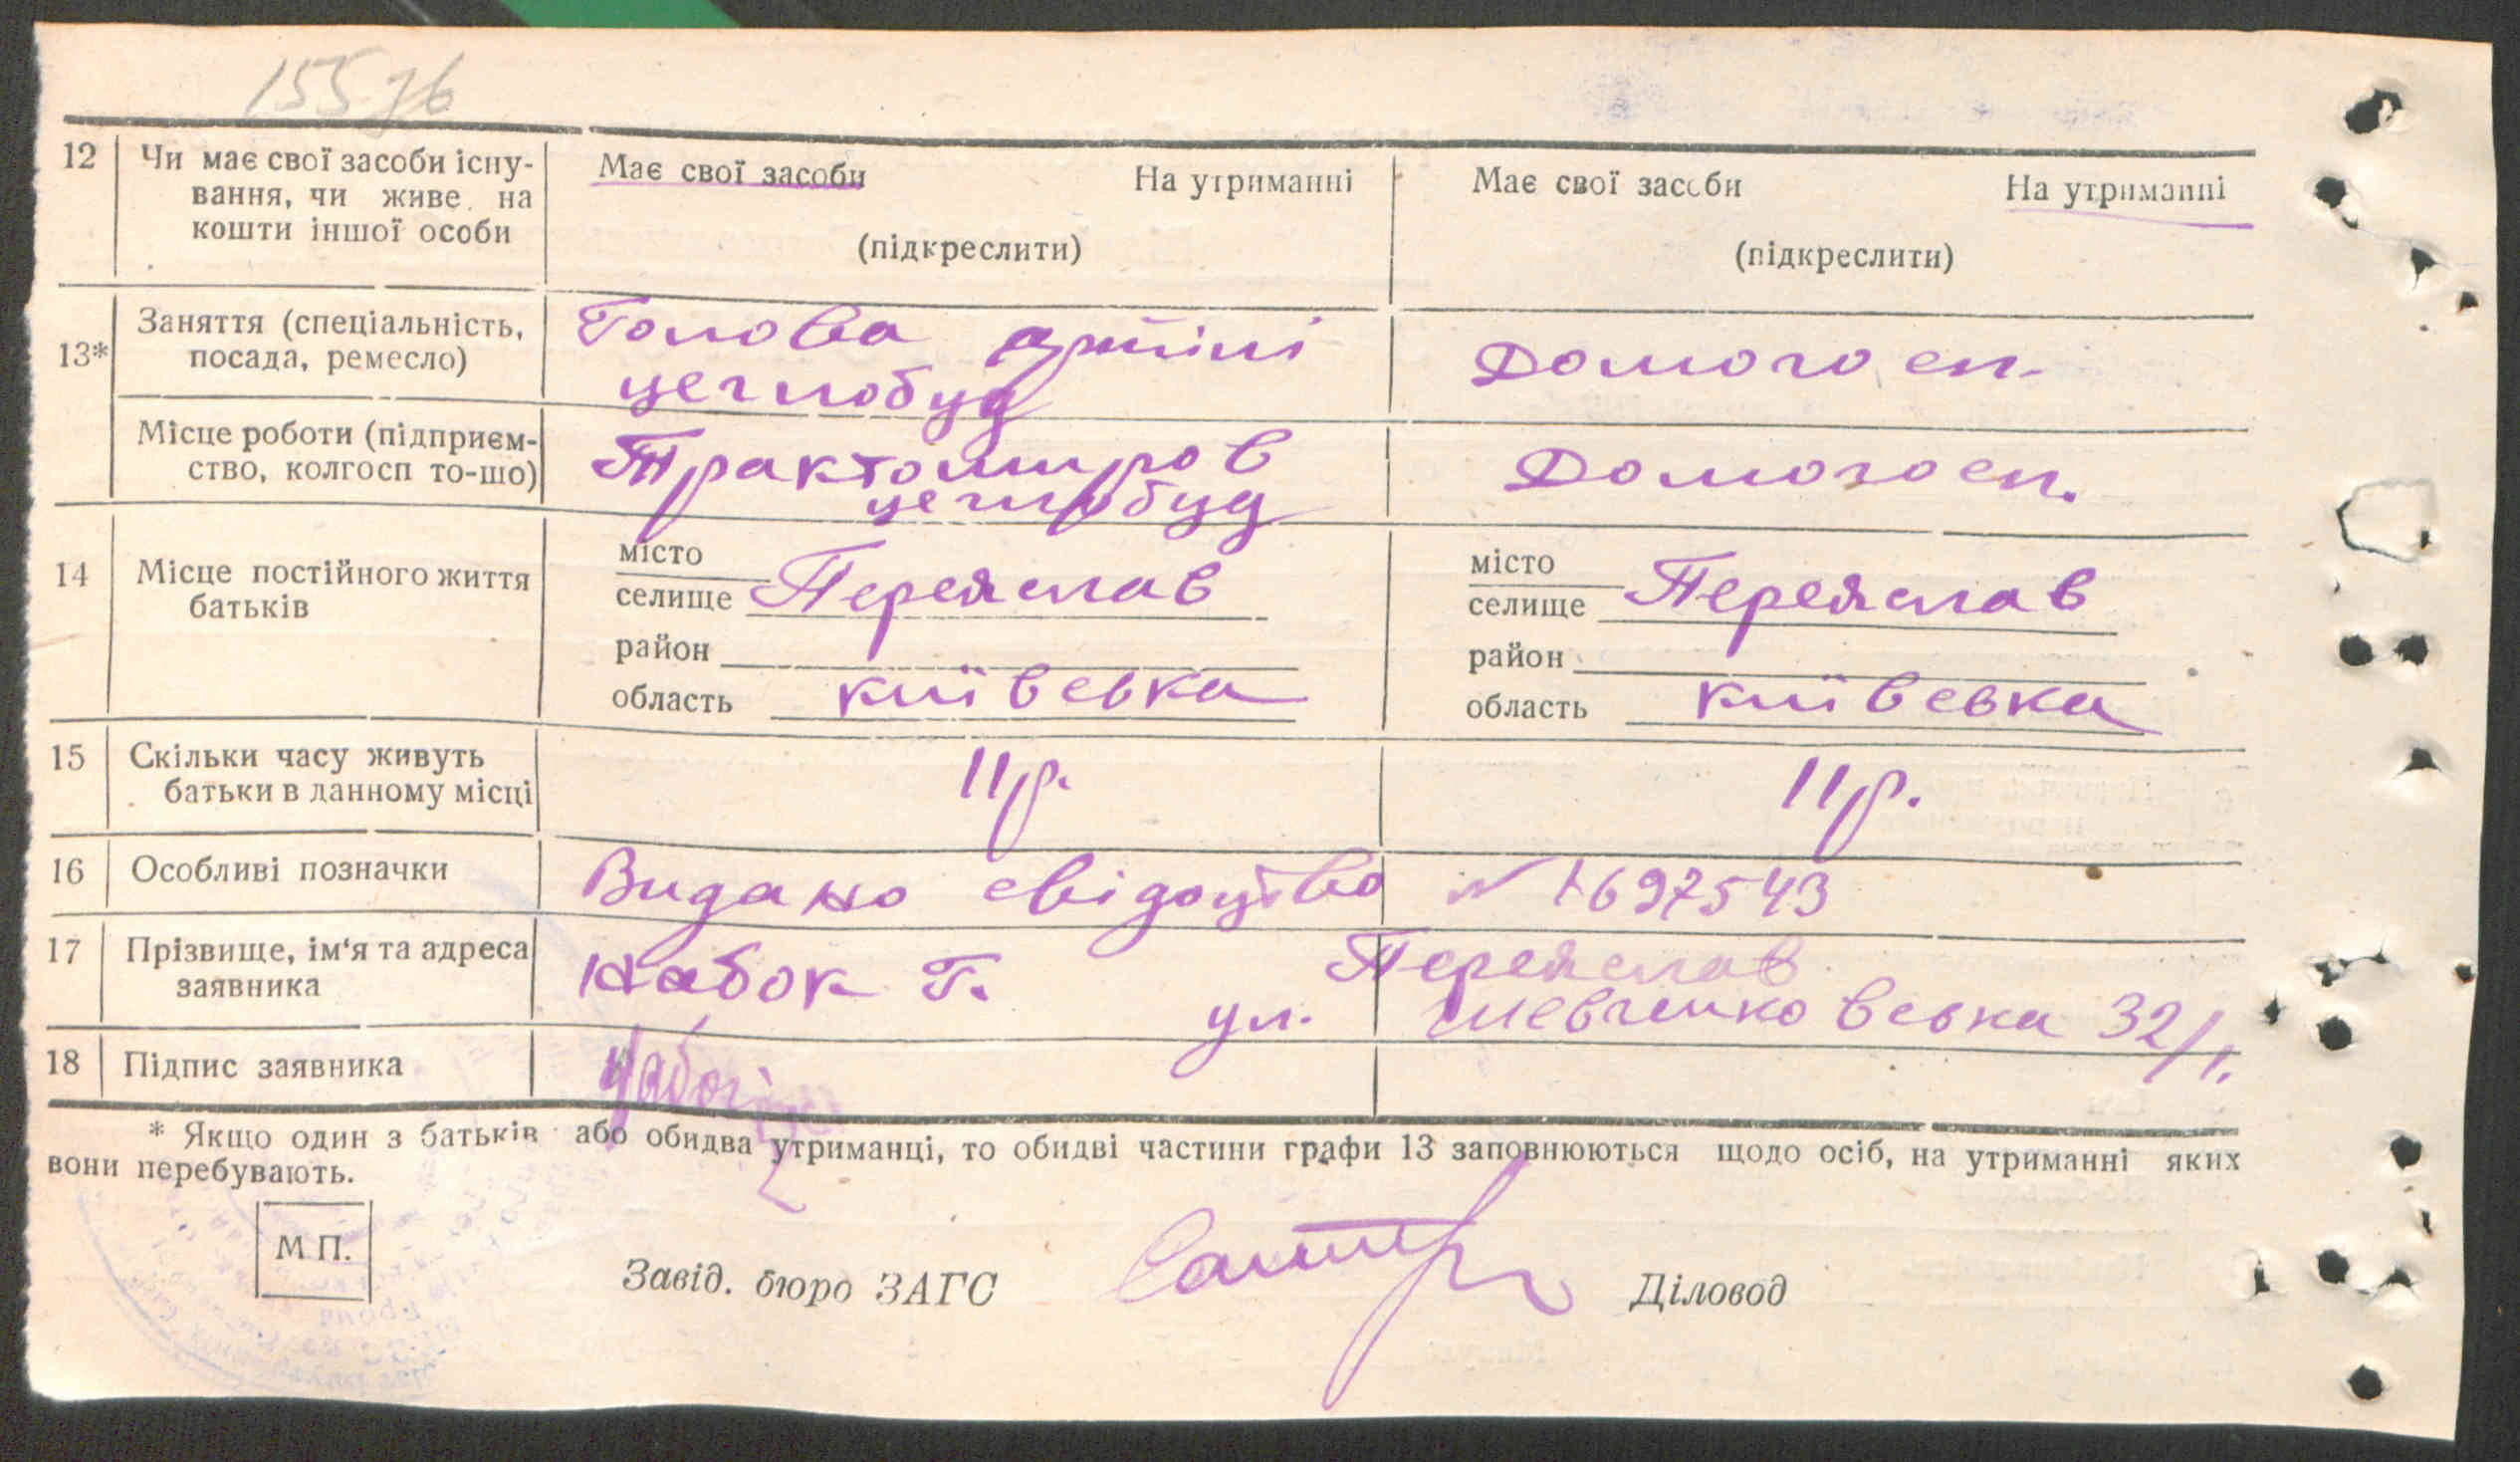 15576
12 Чи має свої засоби існу- Має свої засоби На утриманні Має свої засоби На утриманні
вання, чи живе на
кошти іншої особи (підкреслити) (підкреслити)
Заняття (спеціальність, Голова артілі Домогосп.
13* посада, ремесло) цеглобуд
Місце роботи (підприєм- Трактомиров Домогосп.
ство, колгосп то-що) цеглобуд
місто місто
14 Місце постійного життя селище Переяслав селище Переяслав
батьків
район район
область київська область київська
15 Скільки часу живуть 11 р. 11 р.
батьки в данному місці
16 Особливі позначки Видано свідоцтво № 1697543
17 Прізвище, ім'я та адреса Набок Г. Переяслав
заявника ул. Шевченковська 32/1.
18 Підпис заявника
* Якщо один з батьків або обидва утриманці, то обидві частини графи 13 заповнюються щодо осіб, на утриманні яких
вони перебувають.
М.П.
Завід. бюро ЗАГС Діловод